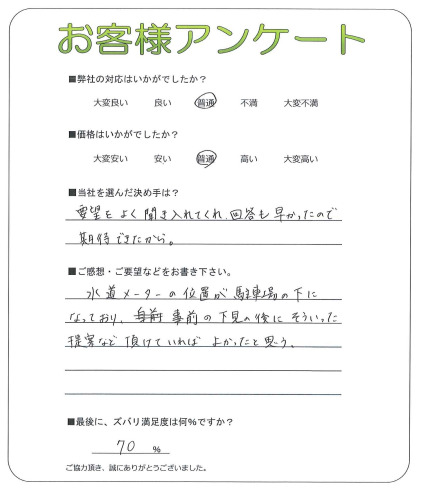 お客様アンケート
■弊社の対応はいかがでしたか？
大変良い 良い 普通 不満 大変不満
■価格はいかがでしたか？
大変安い 安い 普通 高い 大変高い
■当社を選んだ決め手は？
要望をよく聞き入れてくれ、回答も早かったので
期待できたから。
■ご感想・ご要望などをお書き下さい。
水道メーターの位置が駐車場の下に
なっており、事前の下見の後にそういった
提案など頂けていればよかったと思う。
■最後に、ズバリ満足度は何％ですか？
70 ％
ご協力頂き、誠にありがとうございました。